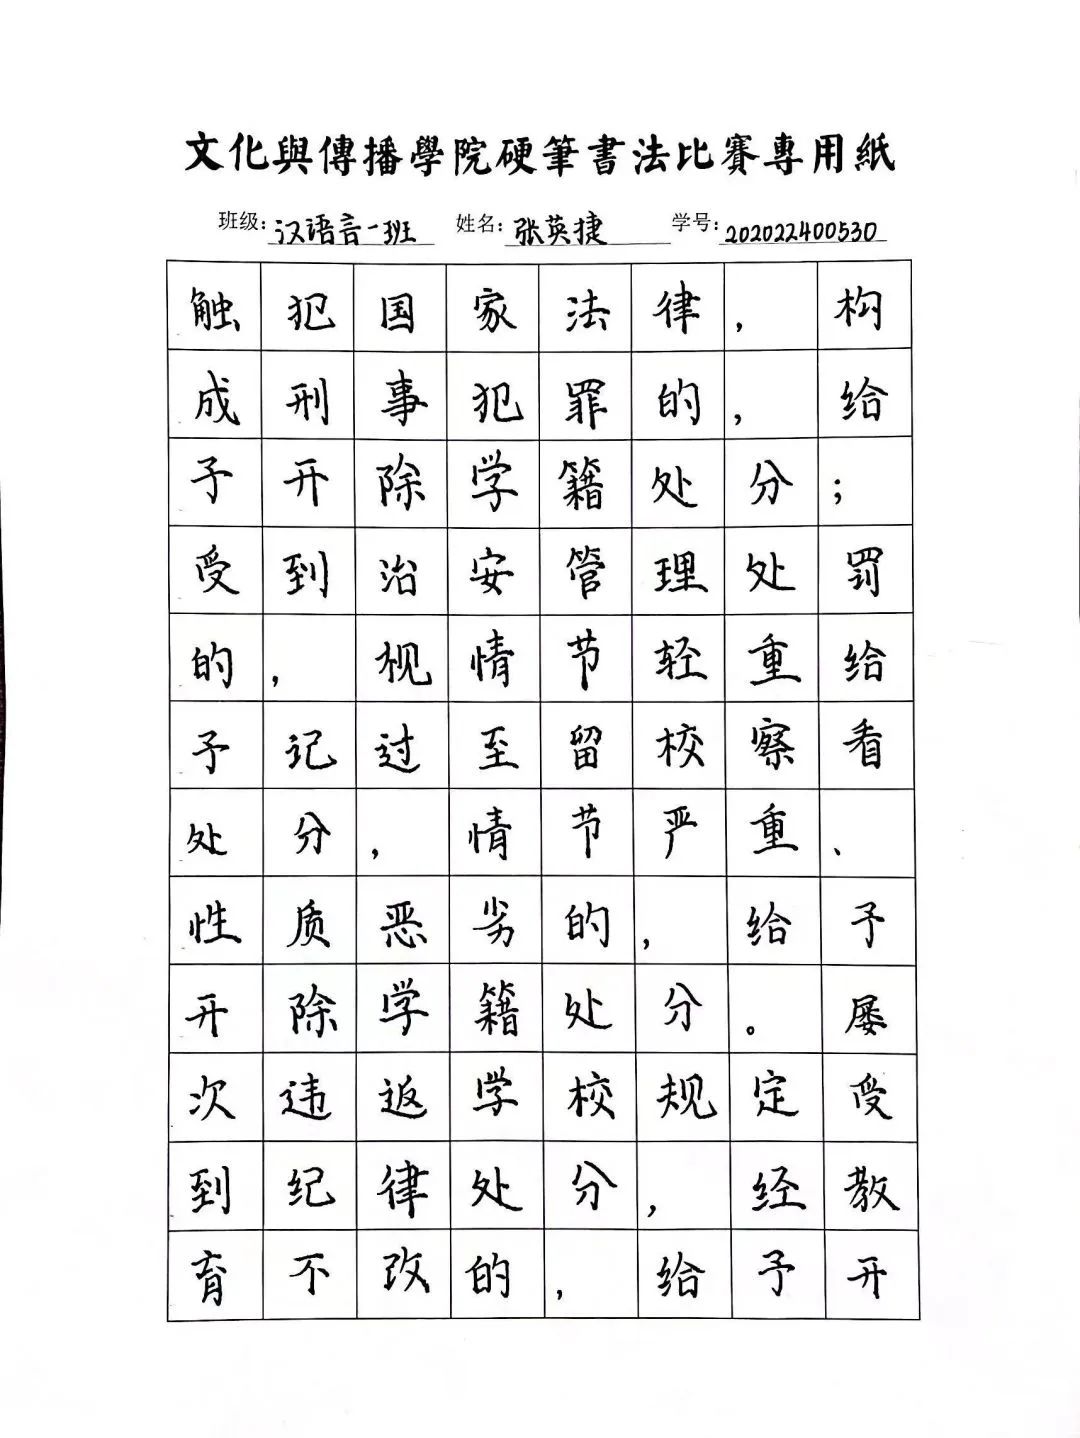 文化與傳播學院硬筆書法比賽專用紙
班级：汉语言一班 姓名：张英捷 学号：202022400530
触犯国家法律，构
成刑事犯罪的，给
予开除学籍处分；
受到治安管理处罚
的，视情节轻重给
予记过至留校察看
处分，情节严重、
性质恶劣的，给予
开除学籍处分。屡
次违返学校规定受
到纪律处分，经教
育不改的，给予开